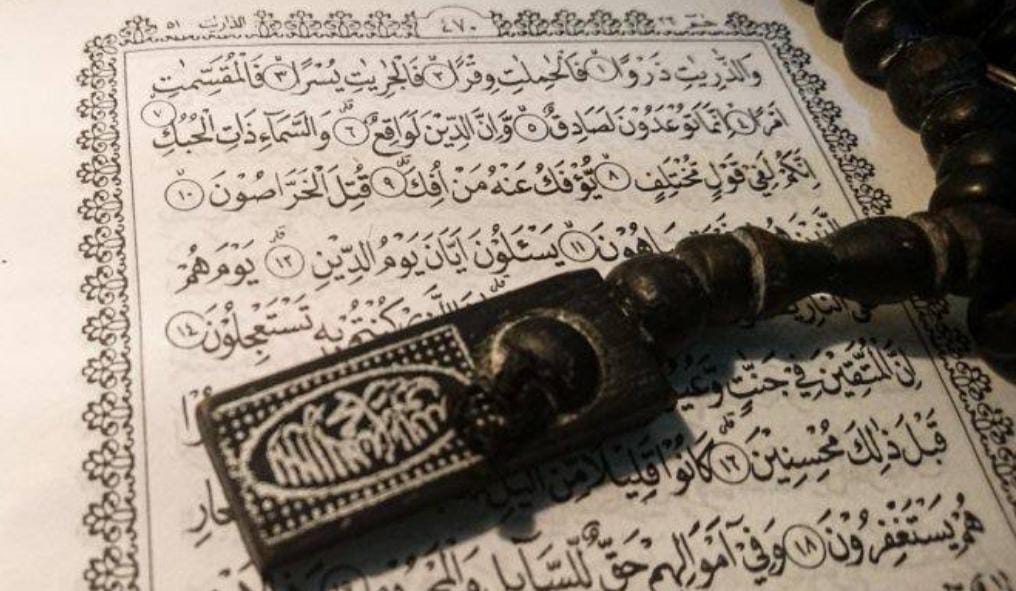 الذاريات ٥١ ٤٧٠ حٰمٓ ٢٦
وَالذّٰرِيٰتِ ذَرْوًا ١ فَالْحٰمِلٰتِ وِقْرًا ٢ فَالْجٰرِيٰتِ يُسْرًا ٣ فَالْمُقَسِّمٰتِ
اَمْرًا ٤ اِنَّمَا تُوْعَدُوْنَ لَصَادِقٌ ٥ وَّاِنَّ الدِّيْنَ لَوَاقِعٌ ٦ وَالسَّمَاءِ ذَاتِ الْحُبُكِ ٧
اِنَّكُمْ لَفِيْ قَوْلٍ مُّخْتَلِفٍ ٨ يُّؤْفَكُ عَنْهُ مَنْ اُفِكَ ٩ قُتِلَ الْخَرَّاصُوْنَ ١٠
الَّذِيْنَ هُمْ سَاهُوْنَ ١١ يَسْـَٔلُوْنَ اَيَّانَ يَوْمُ الدِّيْنِ ١٢ يَوْمَ هُمْ
كُنْتُمْ بِهٖ تَسْتَعْجِلُوْنَ ١٤
اِنَّ الْمُتَّقِيْنَ فِيْ جَنّٰتٍ وَّعُيُوْنٍ
قَبْلَ ذٰلِكَ مُحْسِنِيْنَ ١٦ كَانُوْا قَلِيْلًا مِّنَ الَّيْلِ
هُمْ يَسْتَغْفِرُوْنَ ١٨ وَفِيْ اَمْوَالِهِمْ حَقٌّ لِّلسَّآئِلِ وَالْمَحْرُوْمِ